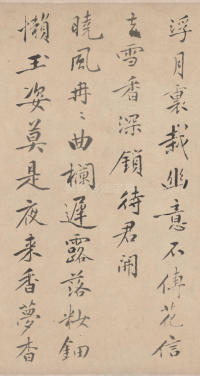 浮月裏栽幽意不傳花信
去雪香深鎖待君開
曉風冉〻曲欄遲露落妝鈿
懶玉姿莫是夜来香夢杳